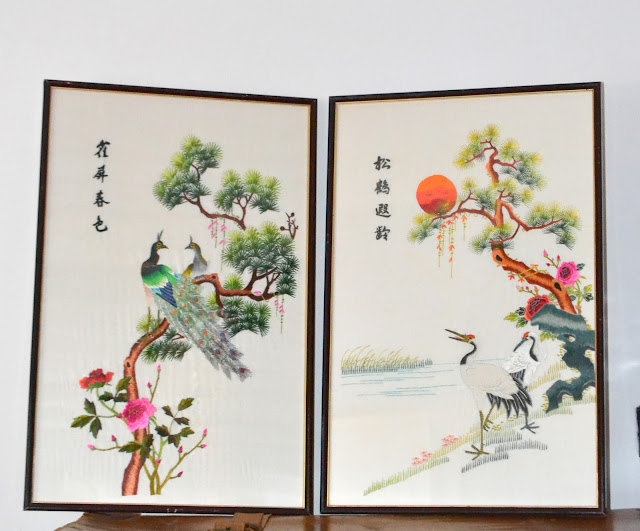 雀屏春色
松鶴遐齡